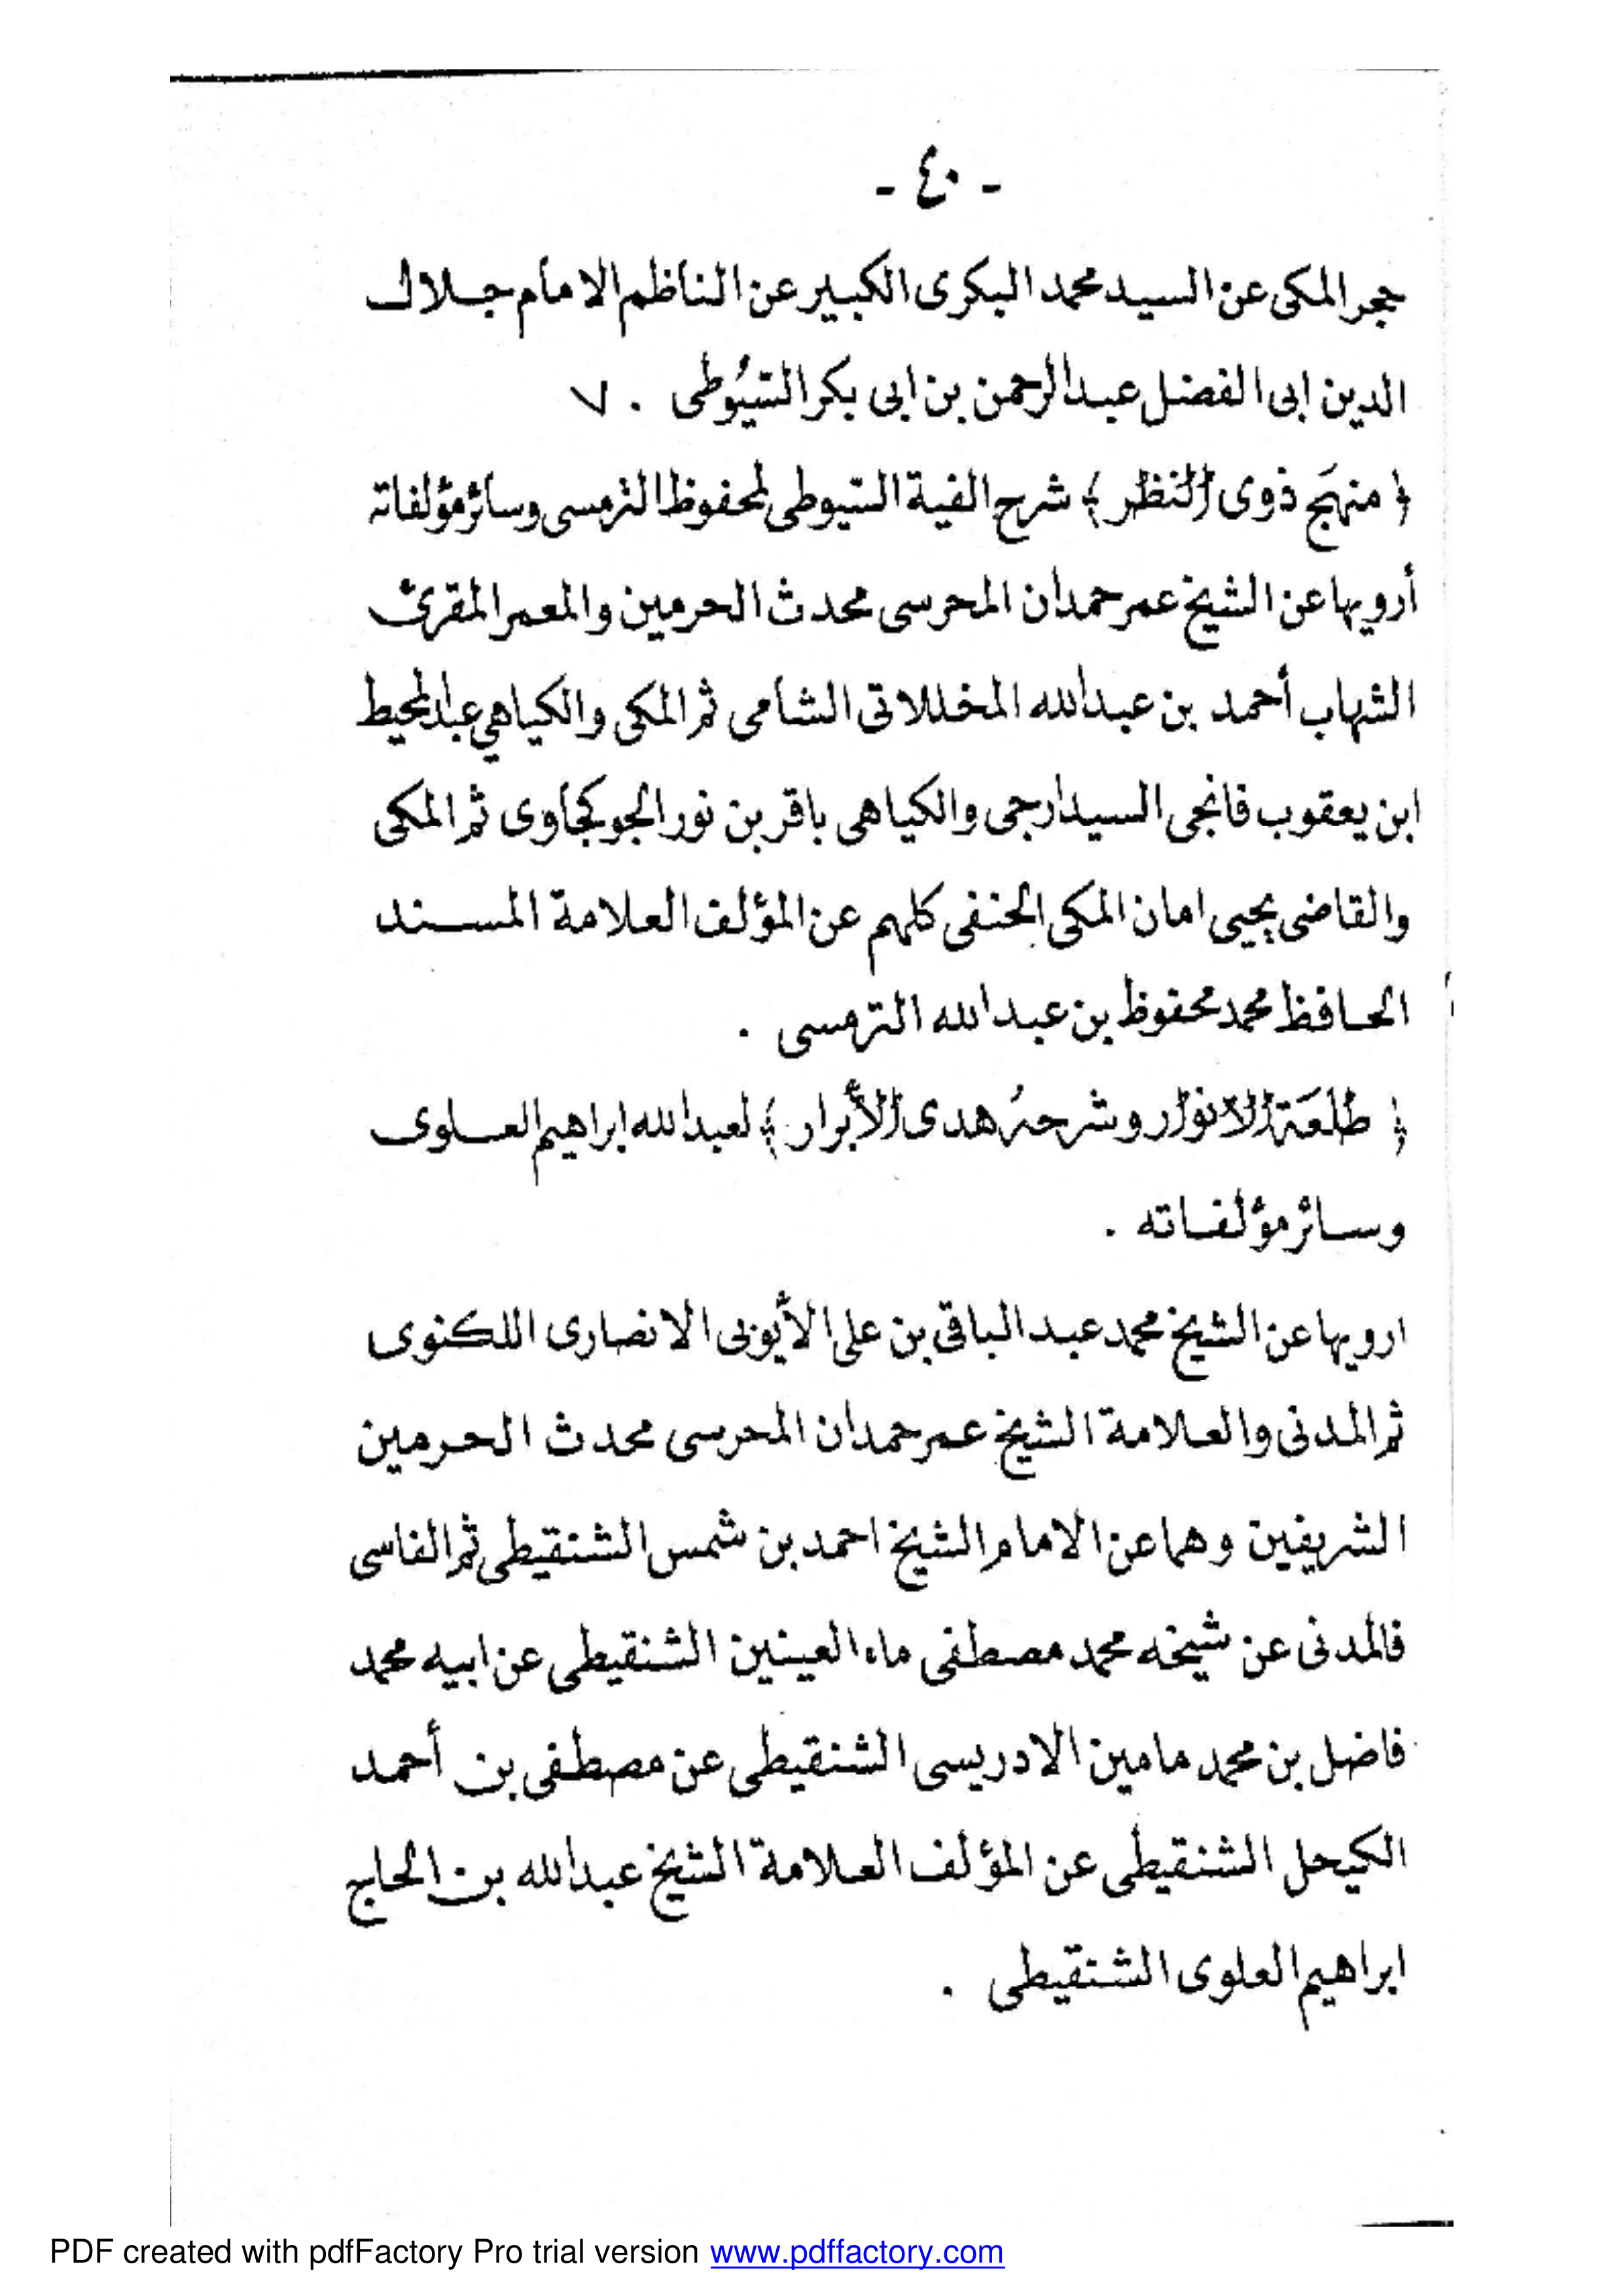 - ٤٠ -
حجر المكى عن السيد محمد البكرى الكبير عن الناظم الامام جلال
الدين ابى الفضل عبد الرحمن بن ابى بكر السّيُوطى . ٧
﴿ منهَج ذوى النظر ﴾ شرح الفية السيوطى لمحفوظ الترمسى وسائر مؤلفاته
أرويها عن الشيخ عمر حمدان المحرسى محدث الحرمين والمعمر المقرئ
الشهاب أحمد بن عبد الله المخللاتى الشامى ثم المكى والكياهي عبد المحيط
ابن يعقوب فانجى السيدارجى والكياهى باقر بن نور الجوكجاوى ثم المكى
والقاضى يحيى امان المكى الحنفى كلهم عن المؤلف العلامة المسند
الحافظ محمد محفوظ بن عبد الله الترمسى .
﴿ طلعَة الانوار وشرحهُ هدى الأبرار ﴾ لعبد الله ابراهيم العلوى
وسائر مؤلفاته .
ارويها عن الشيخ محمد عبد الباقى بن على الأيوبى الانصارى اللكنوى
ثم المدنى والعلامة الشيخ عمر حمدان المحرسى محدث الحرمين
الشريفين وهما عن الامام الشيخ احمد بن شمس الشنقيطى ثم الفاسى
فالمدنى عن شيخه محمد مصطفى ماء العينين الشنقيطى عن ابيه محمد
فاضل بن محمد مامين الادريسى الشنقيطى عن مصطفى بن أحمد
الكيحل الشنقيطى عن المؤلف العلامة الشيخ عبد الله بن الحاج
ابراهيم العلوى الشنقيطى .
PDF created with pdfFactory Pro trial version www.pdffactory.com